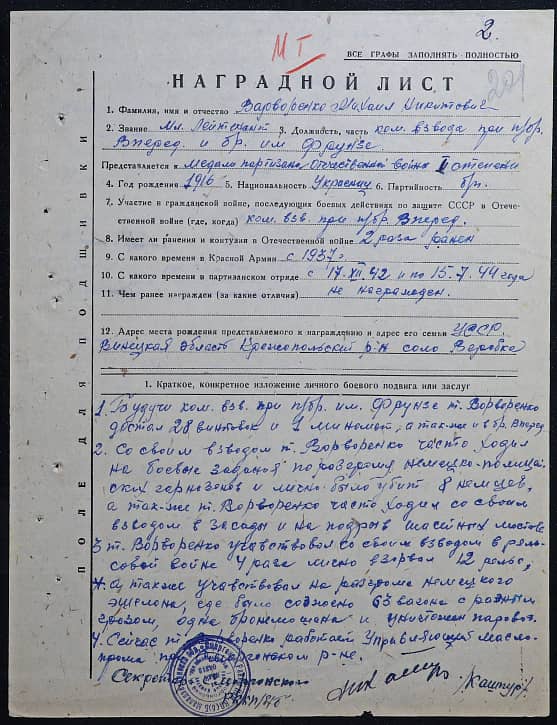 2.
МТ
201
ВСЕ ГРАФЫ ЗАПОЛНЯТЬ ПОЛНОСТЬЮ
НАГРАДНОЙ ЛИСТ
1. Фамилия, имя и отчество Варворенко Михаил Никитович
2. Звание Мл. Лейтенант 3. Должность, часть ком. взвода при п/бр.
Вперед. и бр. им. Фрунзе
Представляется к медали партизана отечественной войны II степени
4. Год рождения 1916 5. Национальность Украинец 6. Партийность бп.
7. Участие в гражданской войне, последующих боевых действиях по защите СССР в Отече-
ственной войне (где, когда) ком. взв. при п/бр. Вперед.
8. Имеет ли ранения и контузии в Отечественной войне 2 раза ранен
9. С какого времени в Красной Армии с 1937 г
10. С какого времени в партизанском отряде с 17.XII.42 и по 15.7.44 года
11. Чем ранее награжден (за какие отличия) не награжден.
12. Адрес места рождения представляемого к награждению и адрес его семьи УССР.
Винецкая область Крожопольский р-н соло Вербка
1. Краткое, конкретное изложение личного боевого подвига или заслуг
1. Будучи ком. взв. при п/бр. им. Фрунзе т. Ворворенко
достал 28 винтовок и 1 миномет, а также и в бр. Вперед
2. Со своим взводом т. Ворворенко часто ходил
на боевые задания по разгрому немецко-полицей
ских гарнезонов и лично было убит 8 немцев,
а так-же т. Ворворенко часто ходил со своим
взводом в засады и на подрыв шасейных мостов
3 т. Ворворенко учавствовал со своим взводом в рель-
совой войне 4 раза лично взорвал 42 рельс,
а также учавствовал на разгроме немецкого
эшелона, где было сожжено 63 вагона с разным
грузом, одна бронемашина и уничтожен паровоз.
4. Сейчас т. Ворворенко работает Управляющий Масло-
прома
р-не.
Секретарь
РККП/б/б
/Каштур/
ПОЛЕ ДЛЯ ПОДШИВКИ